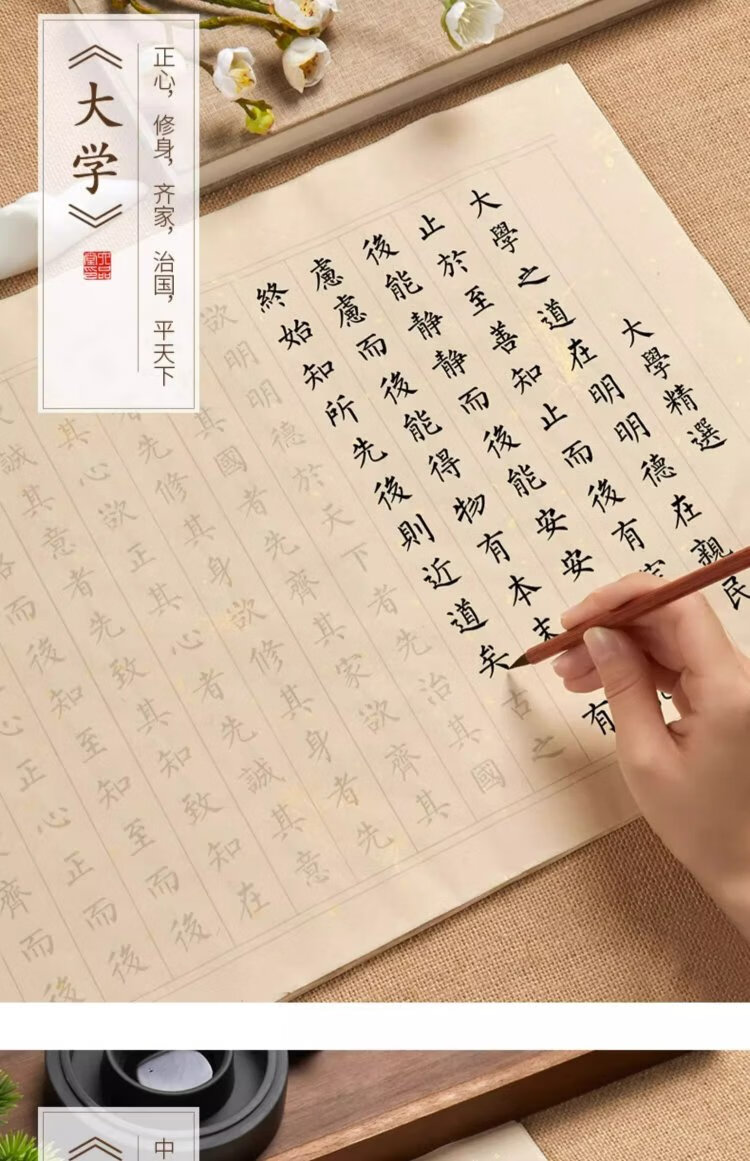 《大学》
正心，修身，齐家，治国，平天下
大學精選
大學之道在明明德在親民
止於至善知止而後有
後能静静而後能安安
慮慮而後能得物有本末有
終始知所先後則近道矣古之
欲明明德於天下者先治其國
其國者先齊其家欲齊其
者先修其身欲修其身者先
其心欲正其心者先誠其意
誠其意者先致其知致知在
而後知至知至而後
心正心正而後
齊而後
《
中